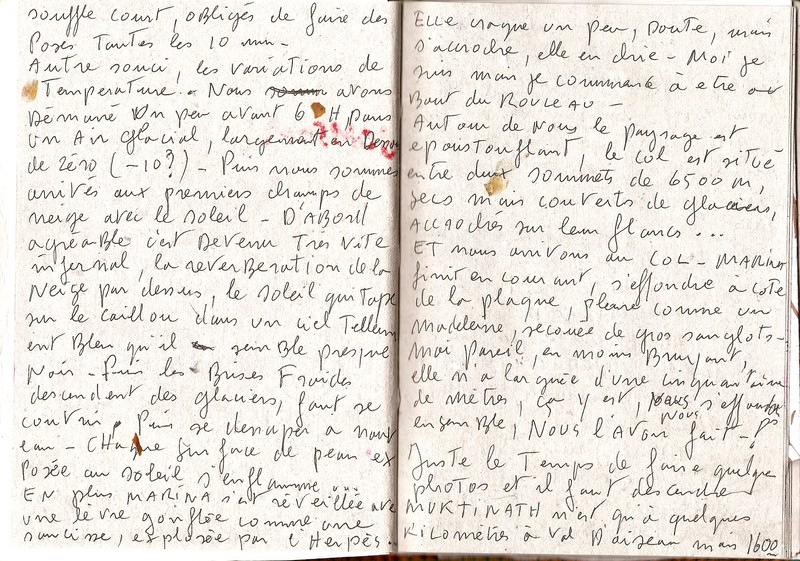 souffle court, obligés de faire des
Poses Toutes les 10 mn -
Autre souci, les variations de
Température. Nous avons
Démarré Un peu avant 6 H, dans
un Air glacial, largement en Dessous
de zéro (-10?) - Puis nous sommes
arrivés aux premiers champs de
neige avec le soleil - D'ABORD
agréable c'est Devenu Tres vite
infernal, la reverBeration de la
Neige par dessus, le soleil qui Tape
sur le caillou dans un ciel Tellem
ent Bleu qu'il semble presque
Noir - Puis les Brises Froides
descendent des glaciers, faut se
couvrir. Puis se desaper à nouv
eau - CHaque surface de peau ex
Posée au soleil s'enflamme ...
EN plus MARINA s'est réveillée avec
une lèvre gonflée comme une
saucisse, explosée par l'Herpès..
Elle craque un peu, Doute, mais
s'accroche, elle en chie - Moi je
suis mais je commence à etre au
Bout du ROULEAU -
Autour de Nous le paysage est
epoustouflant, le col est situé
entre deux sommets de 6500 m,
secs mais couverts de glaciers,
ACCROCHÉS sur leur flancs ...
ET nous arrivons au COL - MARINA
finit en courant, s'effondre à côté
de la plaque, pleure comme un
madeleine, secouée de gros sanglots -
moi pareil, en moins Bruyant,
elle m'a larguée d'une cinquantaine
de mètres, ça y est, on s'effondre
ensemble, Nous l'Avons fait - !
Juste le Temps de faire quelques
photos et il faut descendre
MUKTINATH n'est qu'à quelques
Kilomètres à vol D'oiseau mais 1600